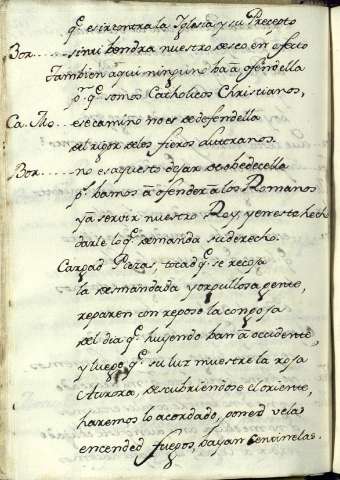 qe. es ir contra la Yglesia, y su Precepto
Bor. ..... sinò bendra nuestro deseo en efecto
Tambien aqui ninguno ba à ofendella
pr. qe. somos Catholicos Christianos,
Ca. Mo. .... ese camino no es defendella
del rigor delos fieros Luteranos.
Bor. ..... no es aquesto dejar de obedecella
ps. bamos à ofender a los Romanos
y à servir nuestro Rey, y en esto hech
darle lo qe. demanda su derecho.
Cargad Piezas, tocad qe. se recoja
la desmandada y orgullosa gente,
reparen con reposo la congoja
del dia qe. huyendo ban à occidente,
y luego qe. su luz muestre la roja
Aurora, descubriendose el oriente,
haremos lo acordado, poned vela
encended fuegos, bayan Sentinelas.